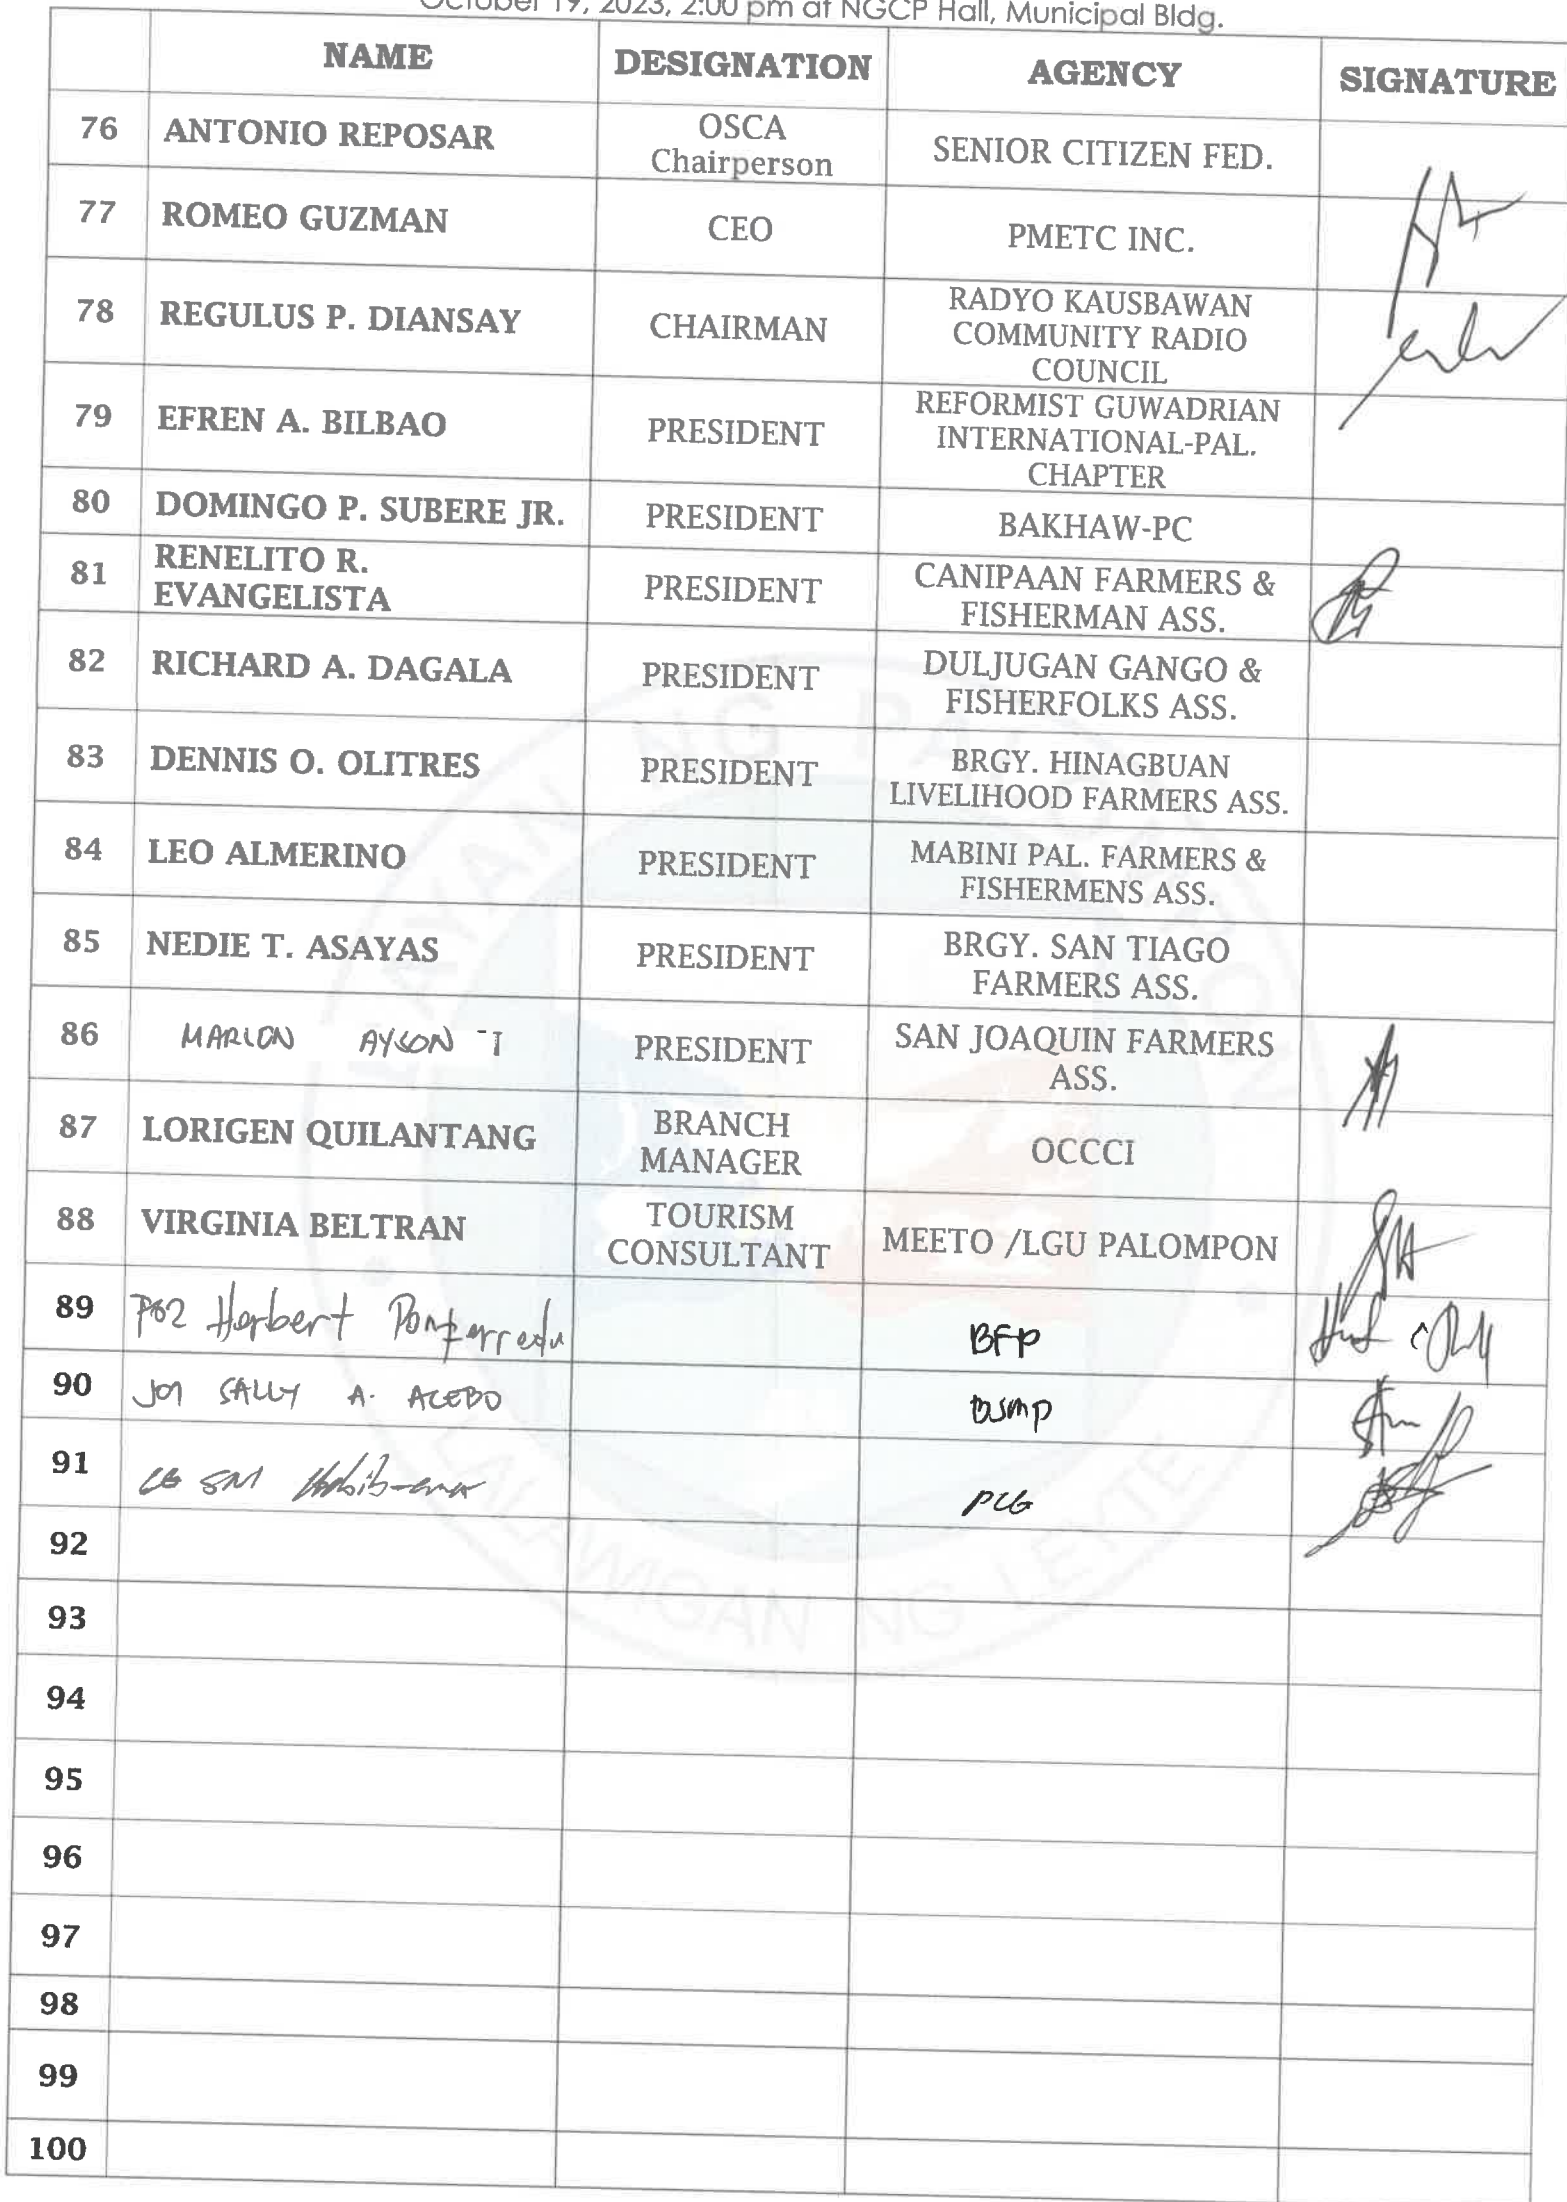 October 19, 2023, 2:00 pm at NGCP Hall, Municipal Bldg.
NAME DESIGNATION AGENCY SIGNATURE
76 ANTONIO REPOSAR OSCA Chairperson SENIOR CITIZEN FED.
77 ROMEO GUZMAN CEO PMETC INC.
78 REGULUS P. DIANSAY CHAIRMAN RADYO KAUSBAWAN COMMUNITY RADIO COUNCIL
79 EFREN A. BILBAO PRESIDENT REFORMIST GUWADRIAN INTERNATIONAL-PAL. CHAPTER
80 DOMINGO P. SUBERE JR. PRESIDENT BAKHAW-PC
81 RENELITO R. EVANGELISTA PRESIDENT CANIPAAN FARMERS & FISHERMAN ASS.
82 RICHARD A. DAGALA PRESIDENT DULJUGAN GANGO & FISHERFOLKS ASS.
83 DENNIS O. OLITRES PRESIDENT BRGY. HINAGBUAN LIVELIHOOD FARMERS ASS.
84 LEO ALMERINO PRESIDENT MABINI PAL. FARMERS & FISHERMENS ASS.
85 NEDIE T. ASAYAS PRESIDENT BRGY. SAN TIAGO FARMERS ASS.
86 MARLON AYSON PRESIDENT SAN JOAQUIN FARMERS ASS.
87 LORIGEN QUILANTANG BRANCH MANAGER OCCCI
88 VIRGINIA BELTRAN TOURISM CONSULTANT MEETO /LGU PALOMPON
89 Herbert BFP
90 JO1 SALLY A. ACEBO BJMP
91 PCG
92
93
94
95
96
97
98
99
100
BAYAN NG PALOMPON
LALAWIGAN NG LEYTE